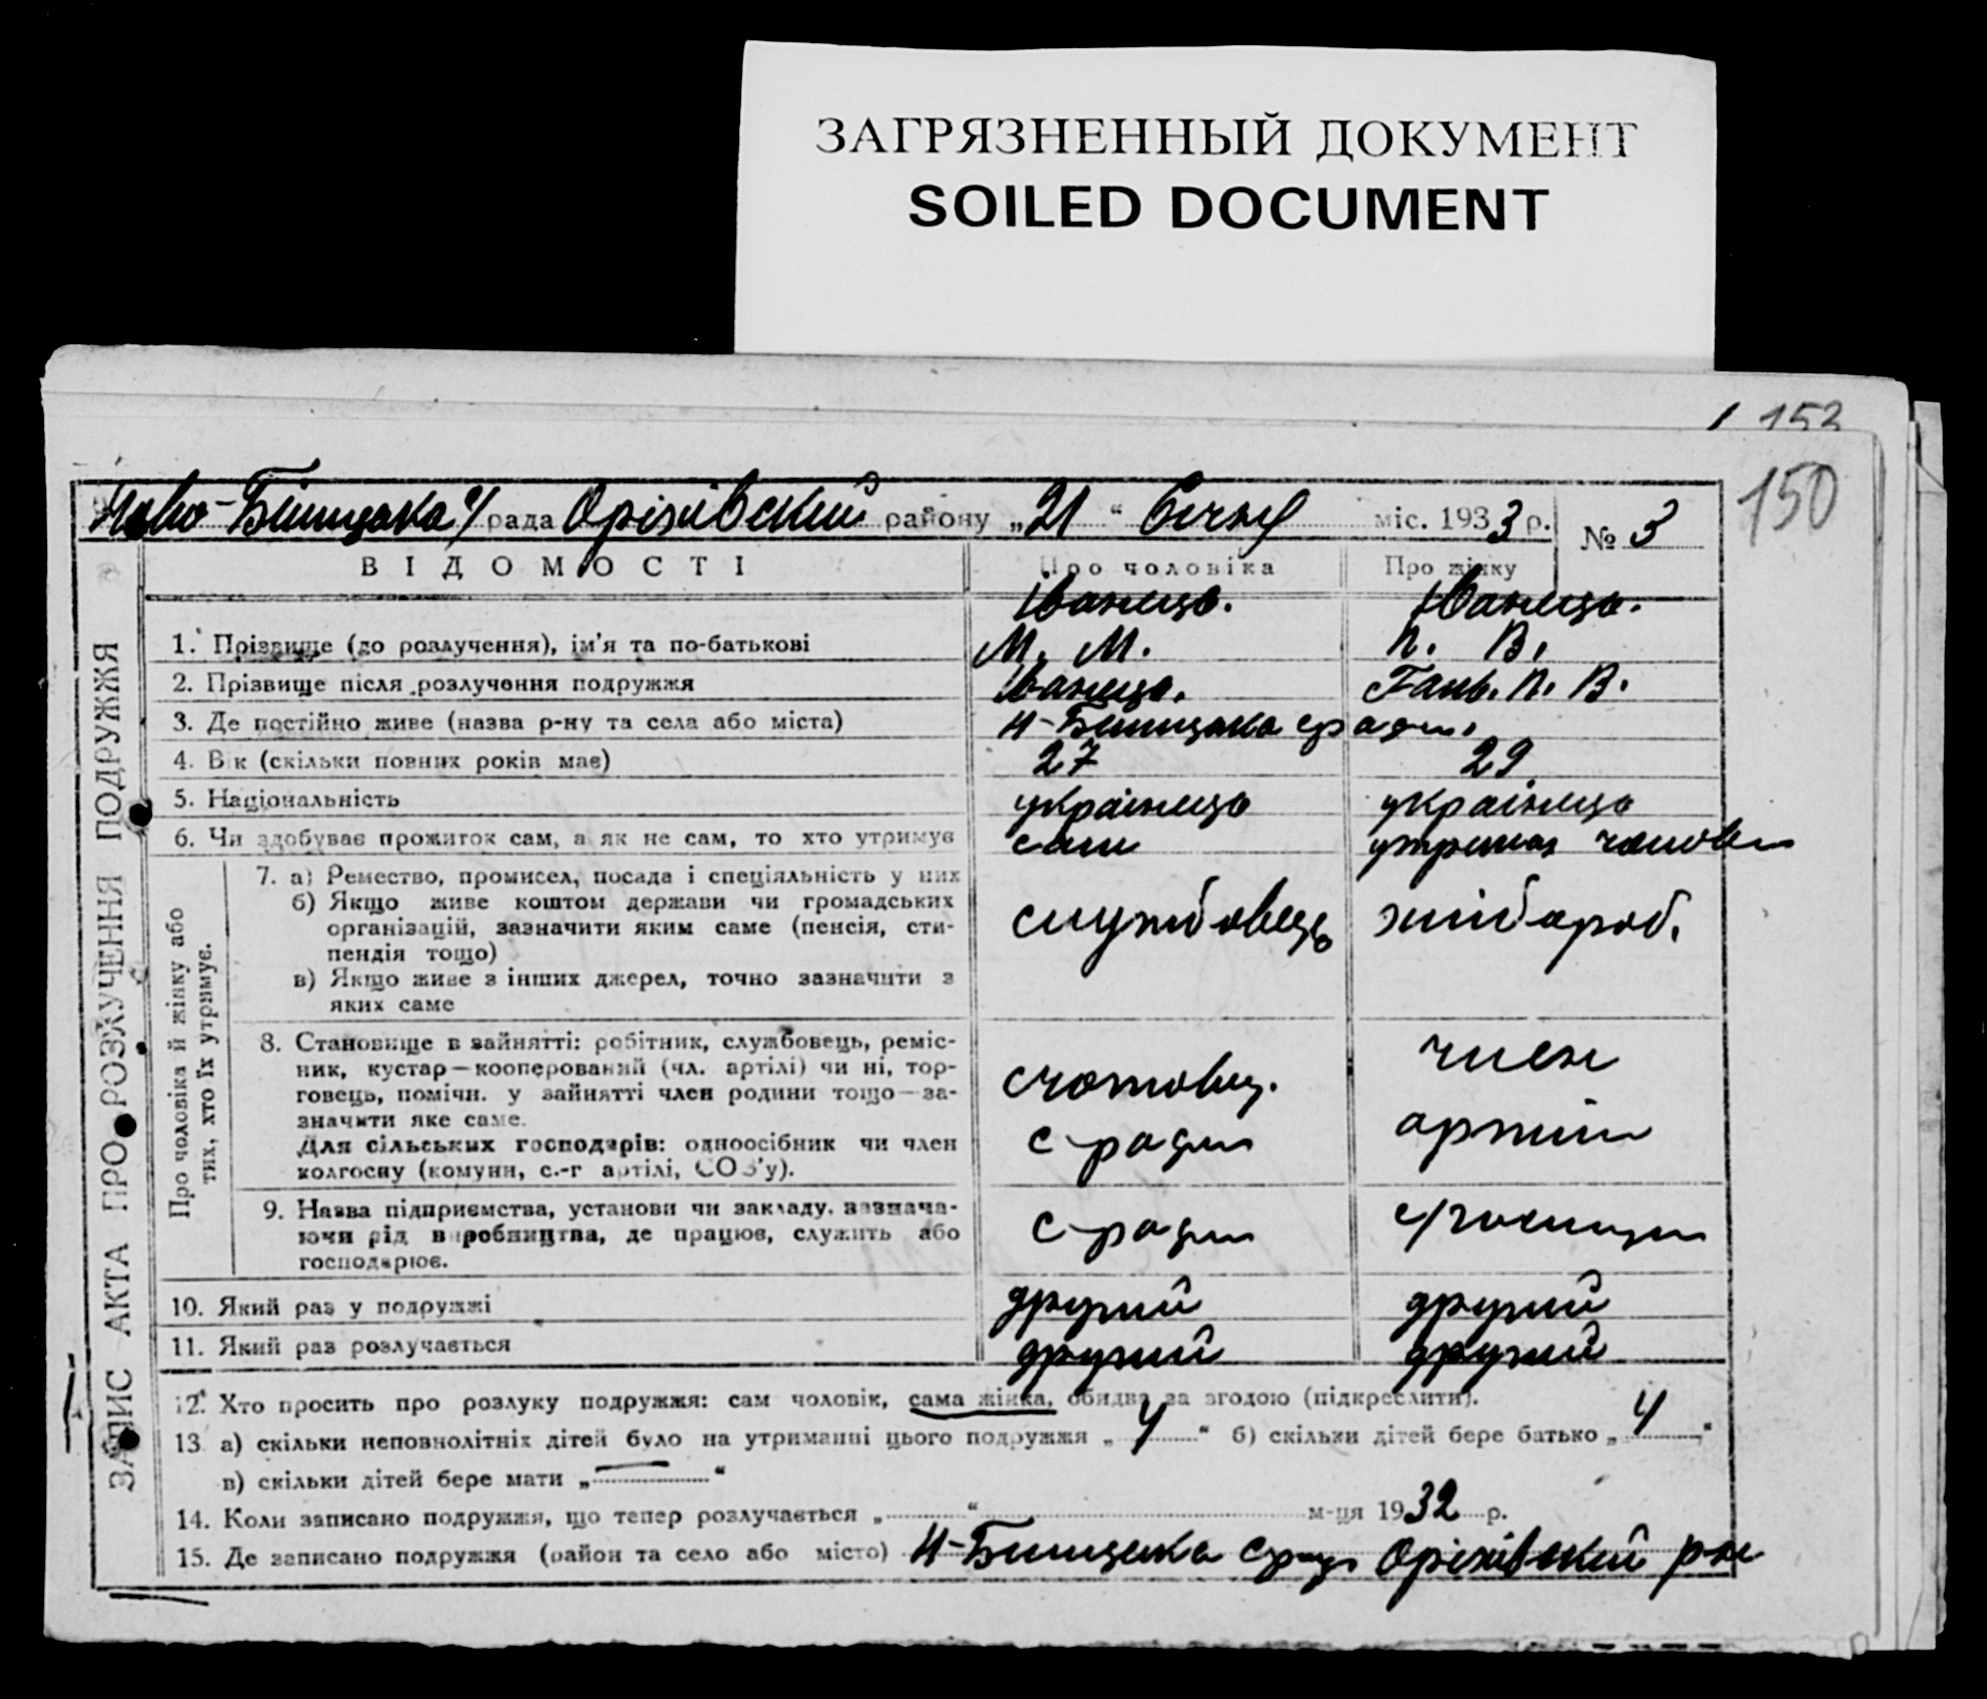 ЗАГРЯЗНЕННЫЙ ДОКУМЕНТ
SOILED DOCUMENT
153
150
рада Оріхівский району „21“ Січня міс. 1933 р. № 3
ЗАПИС АКТА ПРО РОЗЛУЧЕННЯ ПОДРУЖЖЯ
ВІДОМОСТІ Про чоловіка Про жінку
Іванець. Іванець.
1. Прізвище (до розлучення), ім'я та по-батькові М. М. П. В.
2. Прізвище після розлучення подружжя Іванець. Гань. П. В.
3. Де постійно живе (назва р-ну та села або міста)
4. Вік (скільки повних років має) 27 29
5. Національність українець українець
6. Чи здобуває прожиток сам, а як не сам, то хто утримує сам
Про чоловіка й жінку або
тих, хто їх утримує.
7. а) Ремество, промисел, посада і спеціяльність у них
б) Якщо живе коштом держави чи громадських
організацій, зазначити яким саме (пенсія, сти- службовець хлібороб.
пендія тощо)
в) Якщо живе з інших джерел, точно зазначити з
яких саме
8. Становище в зайнятті: робітник, службовець, реміс- член
ник, кустар—кооперований (чл. артілі) чи ні, тор-
говець, помічн. у зайнятті член родини тощо—за-
значити яке саме. артіли
Для сільських господарів: одноосібник чи член
колгоспу (комуни, с.-г артілі, СОЗ'у).
9. Назва підприємства, установи чи закладу, зазнача-
ючи рід виробництва, де працює, служить або
господарює.
10. Який раз у подружжі другий другий
11. Який раз розлучається другий другий
12. Хто просить про розлуку подружжя: сам чоловік, сама жінка, обидва за згодою (підкреслити).
13 а) скільки неповнолітніх дітей було на утриманні цього подружжя „4“ б) скільки дітей бере батько „4“
в) скільки дітей бере мати „—“
14. Коли записано подружжя, що тепер розлучається „ “ м-ця 1932 р.
15. Де записано подружжя (район та село або місто) Оріхівский р-н